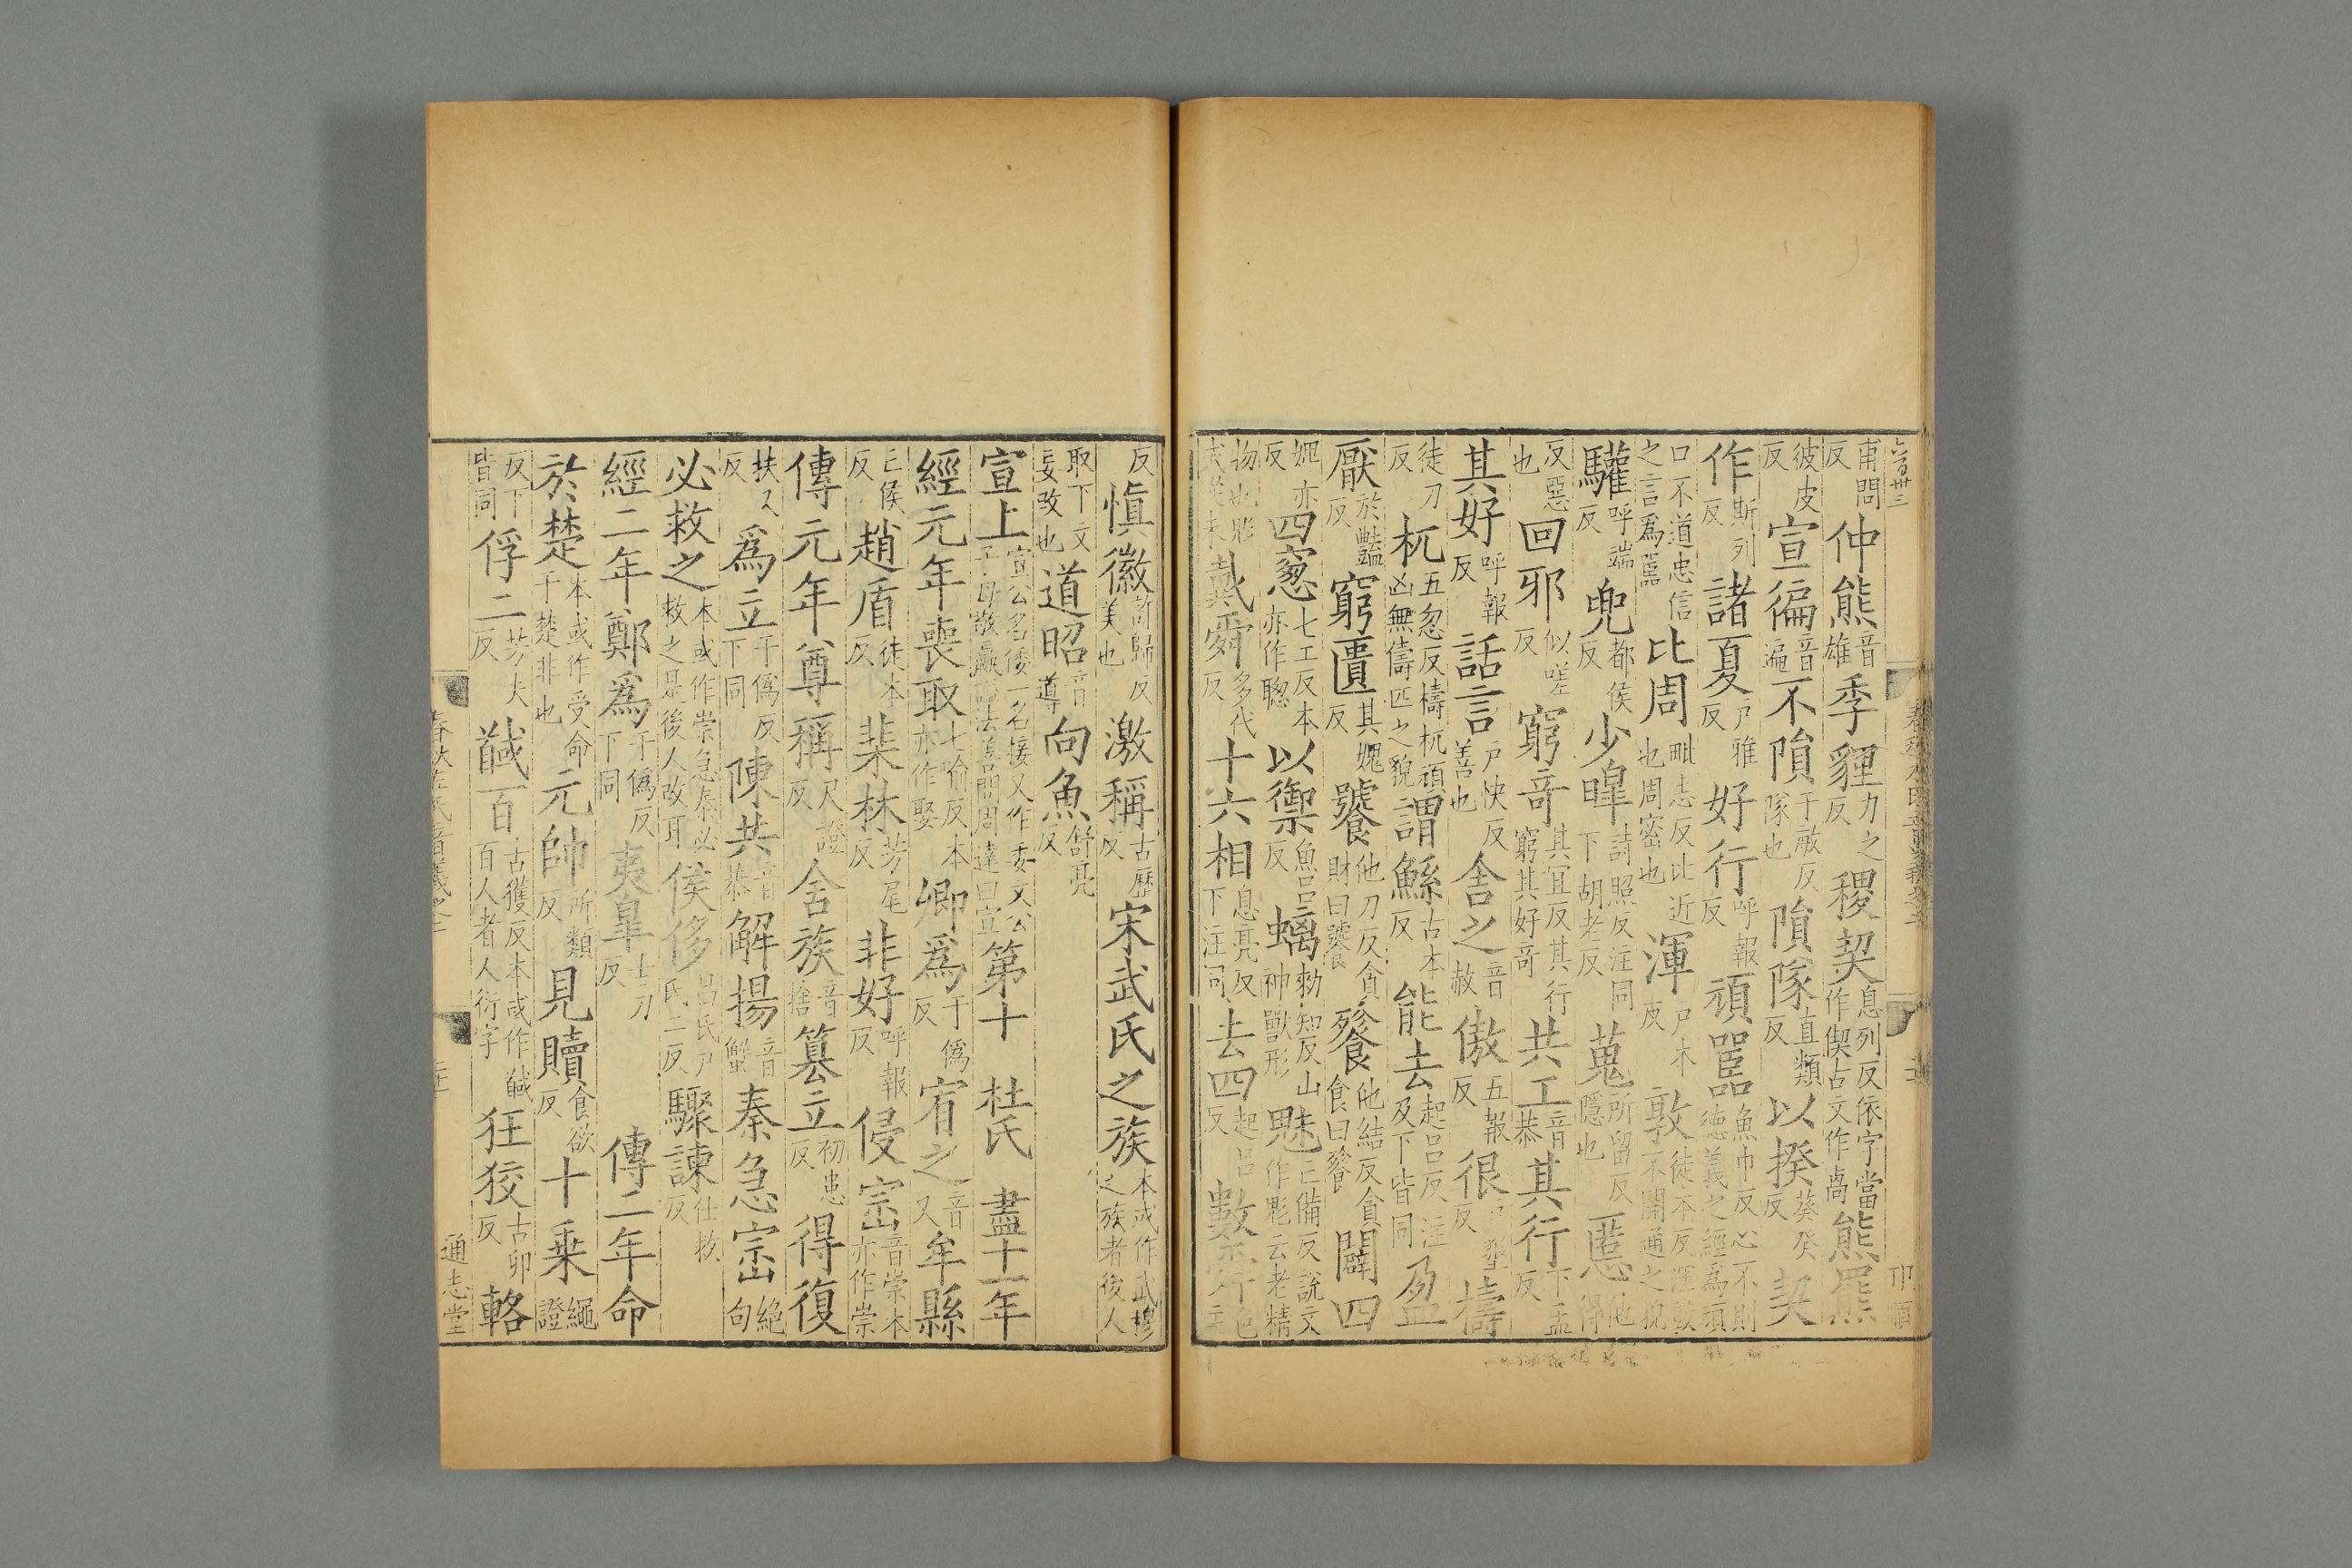 甫問反仲熊音雄季貍力之反稷契息列反依字當作偰古文作卨熊羆
彼皮反宣徧音遍不隕于敏反隊也隕隊直類反以揆葵癸反契
作斯列反諸夏戸雅反好行呼報反頑嚚魚巾反心不則徳義之經爲頑
口不道忠信之言爲嚚比周毗志反比近也周密也渾戸本反敦徒本反渾敦不開通之貌
驩呼端反兜都侯反少皡詩照反注同下胡老反蒐所留反隱也慝他得
反惡也回邪似嗟反窮奇其宜反其行窮其好奇共工音恭其行下孟反
其好呼報反話言戸快反善也舍之音赦傲五報反很戸墾反檮
徒刀反杌五忽反檮杌頑凶無儔匹之貌謂鯀古本反能去起呂反注及下皆同嚚
厭於豔反窮匱其媿反饕他刀反貪財曰饕餮他結反貪食曰餮闢四
婢亦反四窻七工反本亦作聦以禦魚呂反螭勑知反山神獸形魅亡備反説文作鬽云老精
物也鬽或從未戴舜多代反十六相息亮反下注同去四起呂反數
反慎徽許歸反美也激稱古歴反宋武氏之族本或作武穆之族者後人
取下文妄改也道昭音導向魚舒亮反
宣上宣公名倭一名接又作委文公子母敬嬴謚法善問周達曰宣第十 杜氏 盡十一年
經元年喪取七喻反本亦作娶卿爲于僞反宥之音又牟縣
亡侯反趙盾徒本反棐林芳尾反非好呼報反侵崈音崇本亦作崇
傳元年尊稱尺證反舍族音捨簒立初患反得復
扶又反爲立于僞反下同陳共音恭解揚音蟹秦急崈絶句
必救之本或作崇急秦必救之是後人改耳侯侈昌氏尸氏二反驟諫仕救反
經二年鄭爲于僞反下同夷皐古刀反傳二年命
於楚本或作受命于楚非也元帥所類反見贖食欲反十乗繩證
反下皆同俘二芳夫反馘百古獲反本或作馘百人者人衍字狂狡古卯反輅
通志堂